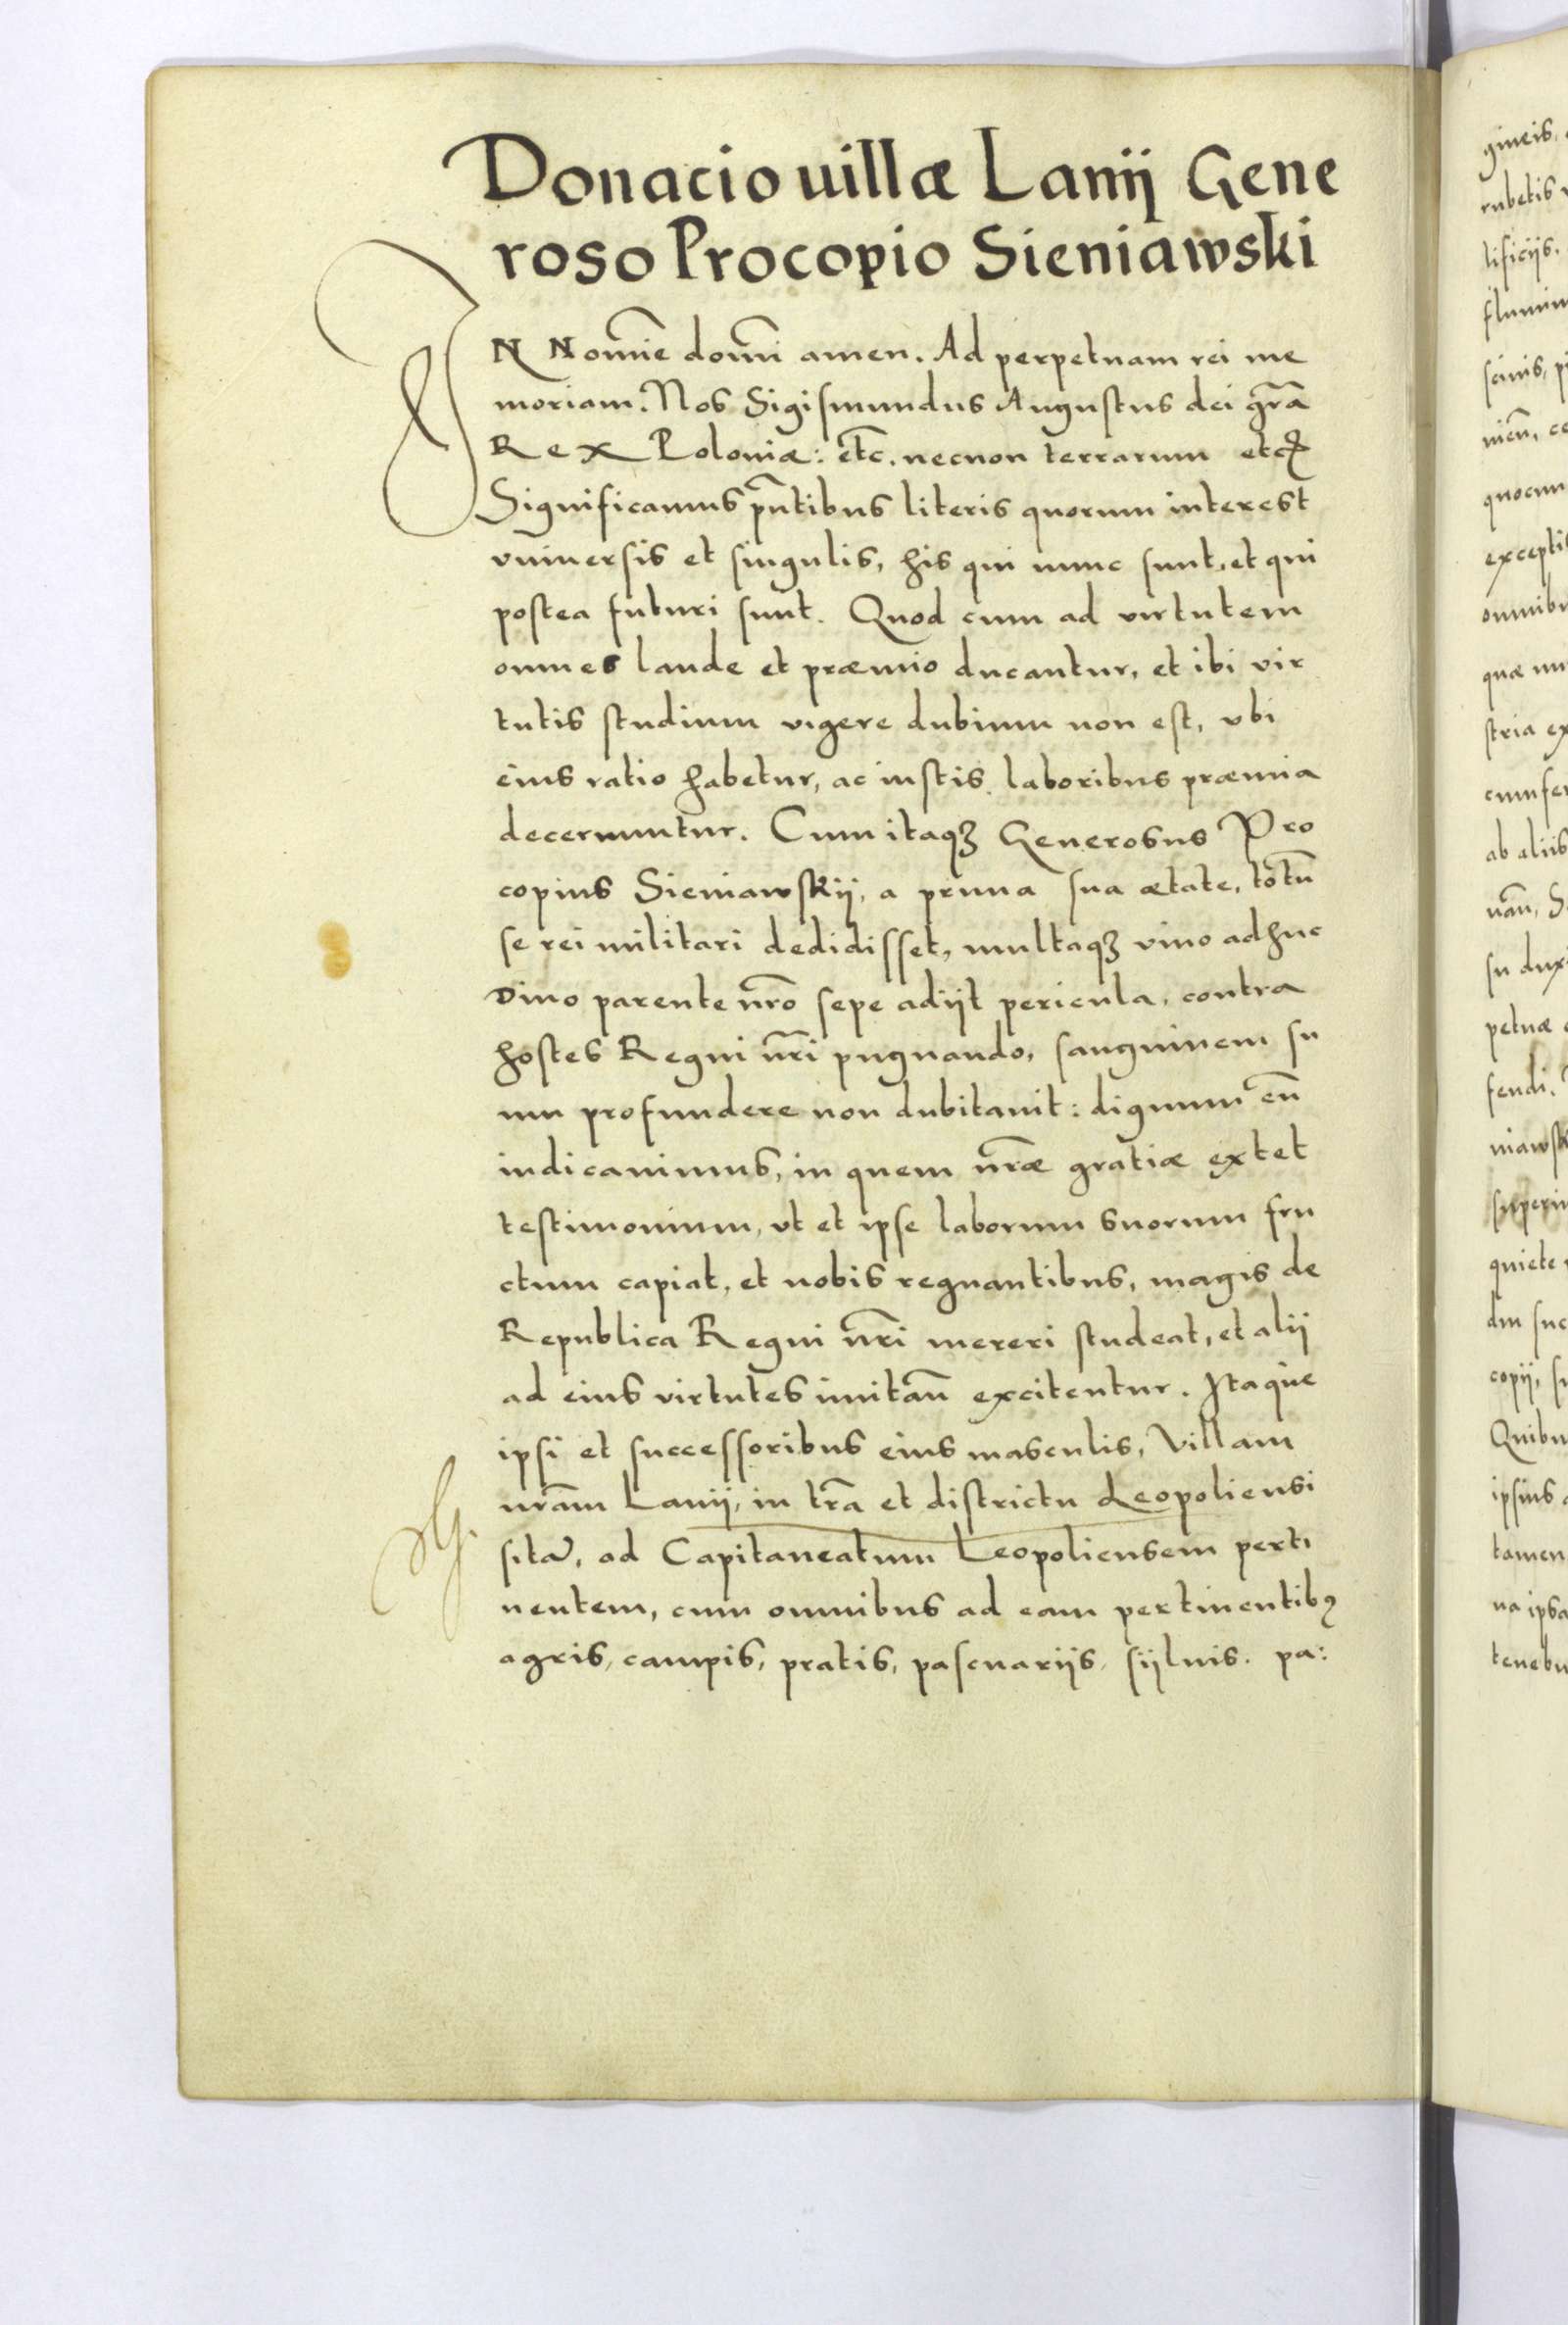 Donacio uillæ Lanij Gene
roso Procopio Sieniawski
IN Nomĩe domĩ amen. Ad perpetuam rei me
moriam. Nos Sigismundus Augustus dei gr̃a
Rex Poloniæ: etc̃. necnon terrarum etc
Significamus pñtibus literis quorum interest
vniuersis et singulis, his qui nunc sunt, et qui
postea futuri sunt. Quod cum ad virtutem
omnes laude et præmio ducantur, et ibi vir
tutis studium vigere dubium non est, vbi
eius ratio habetur, ac iustis laboribus præmia
decernuntur. Cum itaqꝫ Generosus Pro
copius Sieniawskij, a prima sua ætate, totũ
se rei militari dedidisset, multaqꝫ viuo adhuc
Diuo parente nr̃o sepe adijt pericula, contra
hostes Regni nr̃i pugnando, sanguinem su
um profundere non dubitauit: dignum eũ
iudicauimus, in quem nr̃æ gratiæ extet
testimonium, vt et ipse laborum suorum fru
ctum capiat, et nobis regnantibus, magis de
Republica Regni nr̃i mereri studeat, et alij
ad eius virtutes imitañ excitentur. Itaque
ipsi et successoribus eius masculis, Villam
nr̃am Lanij, in tr̃a et districtu Leopoliensi
sitã, ad Capitaneatum Leopoliensem perti
nentem, cum omnibus ad eam pertinentibꝯ
agris, campis, pratis, pascuarijs, sijluis. pa:
gineis,
rubetis
lificijs,
flumin
scinis, pi
nieñ, ce
quocun
exceptis
omnibu
quæ nu
stria ex
cumfer
ab alijs
uañ, S
su duxi
petuæ
fendi.
niawsk
superiu
quiete
diu suc
copij, su
Quibu
ipsius
tamen
na ipsa
tenebu